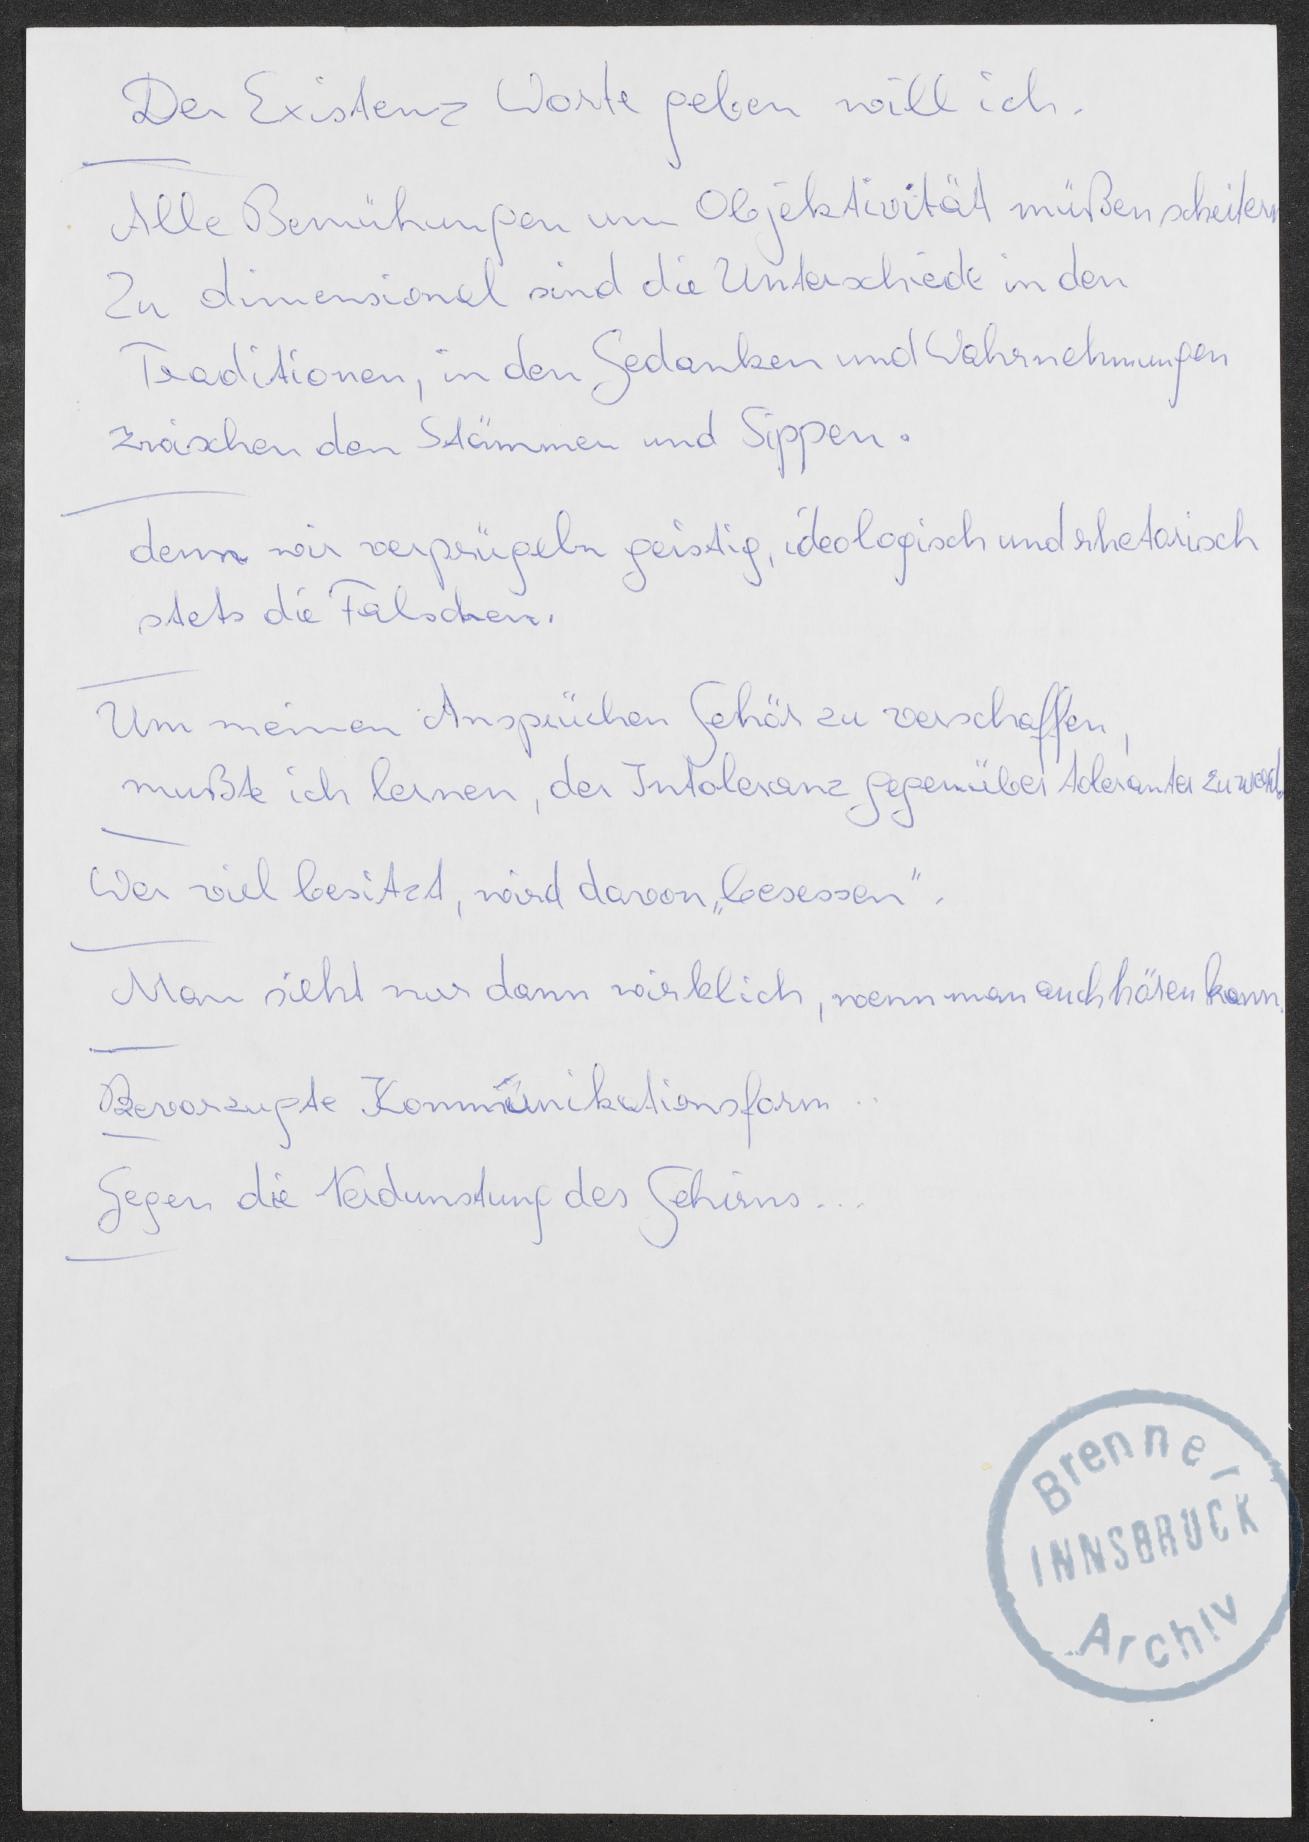 Der Existenz Worte geben will ich.
Alle Bemühungen um Objektivität müßen scheitern
Zu dimensional sind die Unterschiede in den
Traditionen, in den Gedanken und Wahrnehmungen
zwischen den Stämmen und Sippen.
denn wir verprügeln geistig, ideologisch und rhetorisch
stets die Falschen.
Um meinen Ansprüchen Gehör zu verschaffen,
mußte ich lernen, der Intoleranz gegenüber toleranter zu werd.
Wer viel besitzt, wird davon „besessen".
Man sieht nur dann wirklich, wenn man auch hören kann.
Bevorzugte Kommunikationsform ..
Gegen die Verdunstung des Gehirns...
Brenner
INNSBRUCK
Archiv